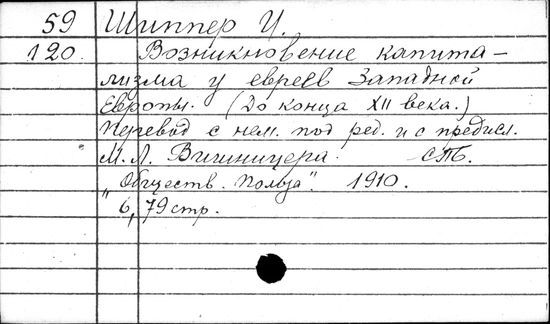 59 Шиппер И.
120. Возникновение капита-
лизма у евреев Западной
Европы. (До конца XII века.)
Перевод с нем. под ред. и с предисл.
М. Л. Вишницера. СПб.
„Обществ. Польза". 1910.
6, 79 стр.